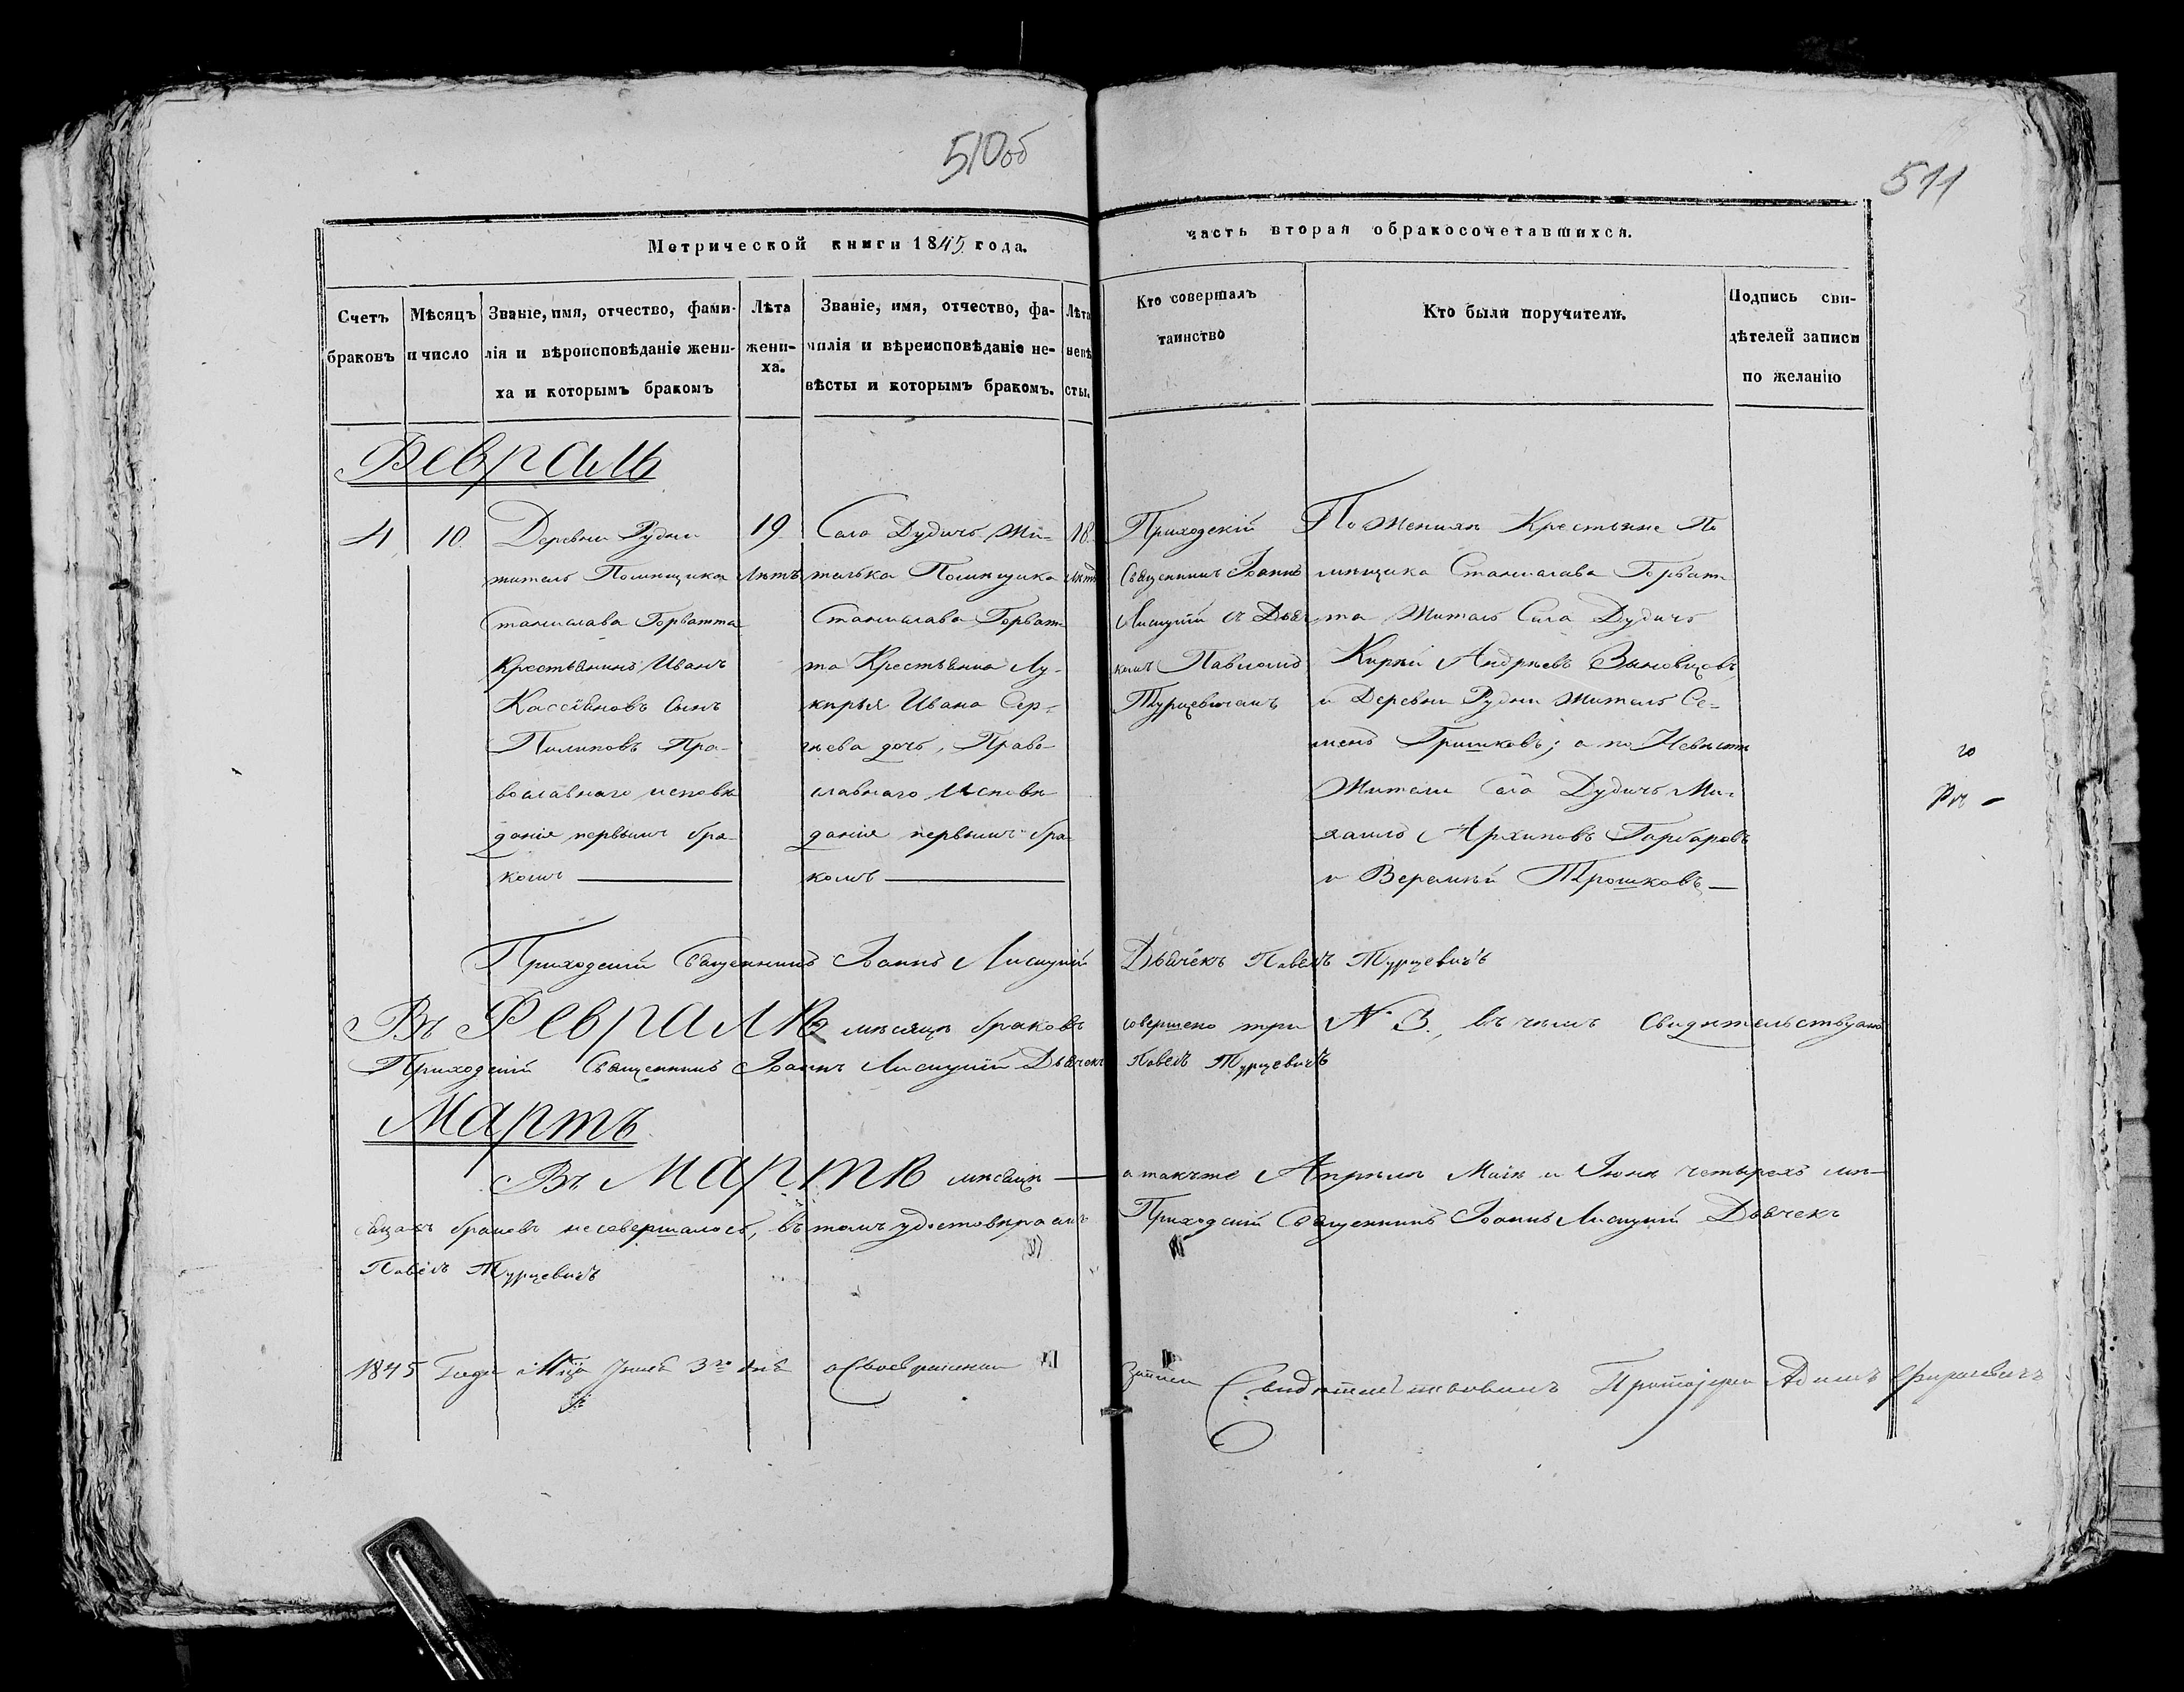 510об
511
Метрической книги 1845 года.
часть вторая обракосочетавшихся.
Счетъ браковъ
Мѣсяцъ и число
Званіе, имя, отчество, фами-
лія и вѣроисповѣданіе жени-
ха и которымъ бракомъ
Лѣта
жени-
ха.
Званіе, имя, отчество, фа-
милія и вѣреисповѣданіе не-
вѣсты и которымъ бракомъ.
Лѣта
невѣ
сты.
Кто совершалъ
таинство
Кто были поручители.
Подпись сви-
дѣтелей записи
по желанію
Февраль
4
10.
Деревни Рудни
житель Помѣщика
Станислава Горватта
Крестьянинъ Иванъ
Кассіяновъ Сынъ
Пилиповъ Пра-
вославнаго исповѣ
данія первымъ бра-
комъ
19
Лѣтъ
Села Дудичь Жи-
телька Помѣщика
Станислава Горват
та Крестьянка Лу-
кирья Ивана Сер-
гѣева дочь, Право-
славнаго Исповѣ
данія первымъ бра-
комъ
18.
Лѣтъ
Приходскій
Священникъ Іоаннъ
Лисицкій съ Дья
комъ Павломъ
Турцевичемъ
По Женихѣ Крестьяне По
мѣщика Станислава Горват
та Житель Села Дудичь
Кирѣй Андрѣевъ
и Деревни Рудни Житель Се-
менъ Гришковъ; а по Невѣстѣ
Жители Села Дудичь Ми-
хаилъ Архиповъ Гарбаровъ
и Веремѣй Трошковъ
Приходскій Священникъ Іоаннъ Лисицкій Дьячекъ Павелъ Турцевичъ
Въ Февралѣ мѣсяцѣ браковъ совершено три № 3., въ чемъ Свидѣтельствуемъ
Приходскій Священникъ Іоаннъ Лисицкій Дьячекъ Павелъ Турцевичъ
Мартъ
Въ Мартѣ мѣсяцѣ а также Апрѣлѣ Маіѣ и Іюнѣ четырехъ мѣ-
сяцахъ браковъ несовершалось, въ томъ удостовѣряемъ Приходскій Священникъ Іоаннъ Лисицкій Дьячекъ
Павелъ Турцевичъ
1845 Года Мца 3го дня записи Свидѣтельствовалъ Протоіерей Адамъ